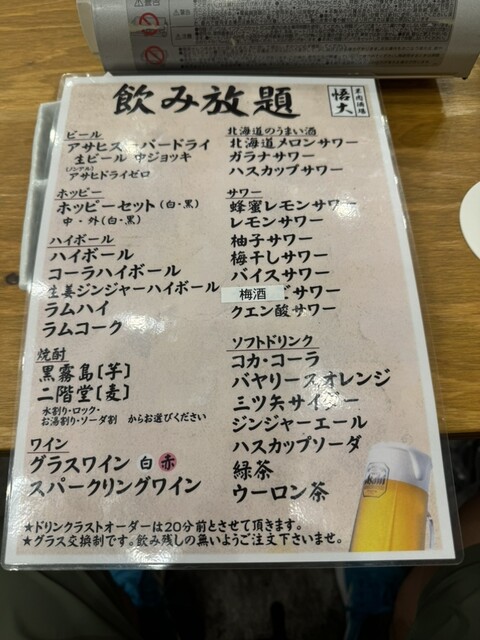 飲み放題
羊肉酒場
悟大
ビール
アサヒスーパードライ
生ビール 中ジョッキ
(ノンアル)
アサヒドライゼロ
ホッピー
ホッピーセット(白・黒)
中・外(白・黒)
ハイボール
ハイボール
コーラハイボール
生姜ジンジャーハイボール
ラムハイ
ラムコーク
焼酎
黒霧島〔芋〕
二階堂〔麦〕
水割り・ロック・
お湯割り・ソーダ割 からお選びください
ワイン
グラスワイン 白 赤
スパークリングワイン
北海道のうまい酒
北海道メロンサワー
ガラナサワー
ハスカップサワー
サワー
蜂蜜レモンサワー
レモンサワー
柚子サワー
梅干しサワー
バイスサワー
梅酒 サワー
クエン酸サワー
ソフトドリンク
コカ・コーラ
バヤリースオレンジ
三ツ矢サイダー
ジンジャーエール
ハスカップソーダ
緑茶
ウーロン茶
Asahi
★ドリンクラストオーダーは20分前とさせて頂きます。
★グラス交換制です。飲み残しの無いようご注文下さいませ。